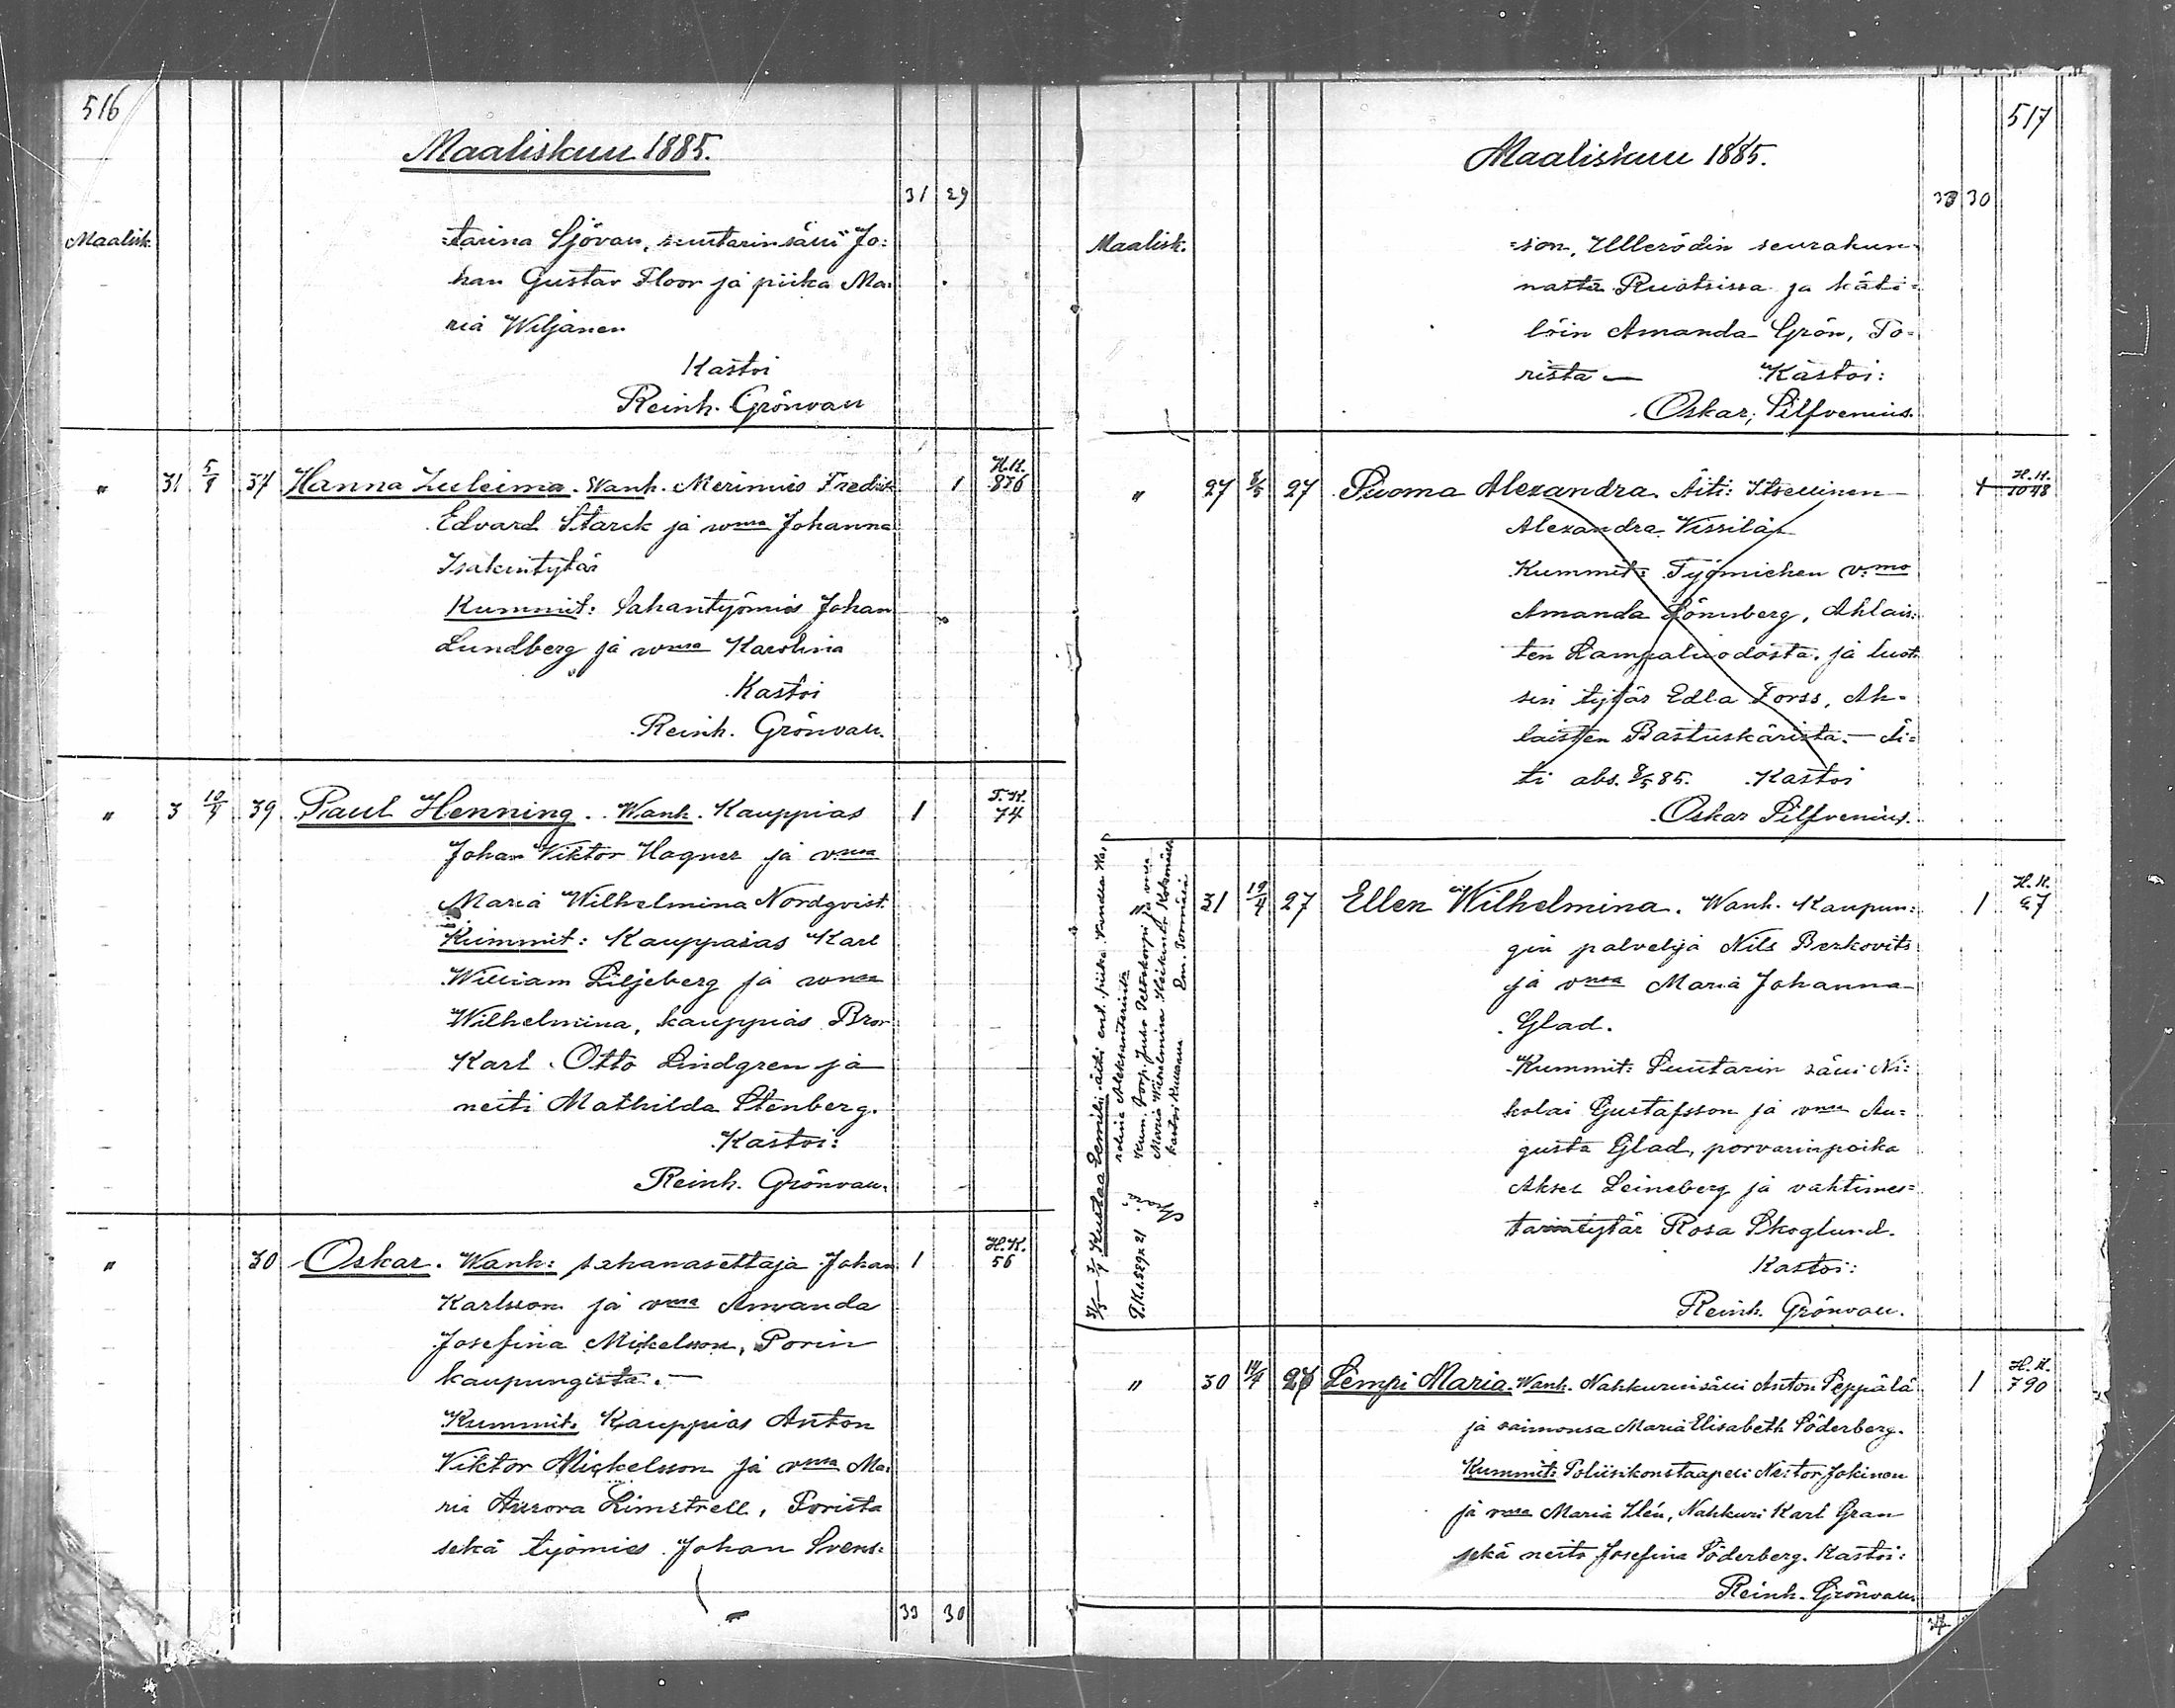 516
Maaliskuu 1885.
31 29
Maalisk. =tarina Sjövan, suutarinsälli Jo=
han Gustav Floor ja piika Ma=
ria Wiljanen
Kastoi
Reinh. Grönvall
" 31 5/4 37 Hanna Zuleima. Wanh. Merimies Fredrik 1 H.K. 876
Edvard Starck ja wmsa Johanna
Isakintytär
Kummit: Sahantyömies Johan
Lundberg ja wmsa Karolina
Kastoi
Reinh. Grönvall.
" 3 10/4 39 Paul Henning. Wanh. Kauppias 1 T.K. 74
Johan Viktor Hagner ja vmsa
Maria Wilhelmina Nordqvist.
Kummit: Kauppaias Karl
William Liljeberg ja wmsa
Wilhelmina, kauppias Bror
Karl Otto Lindgren ja
neiti Mathilda Stenberg.
Kastoi:
Reinh. Grönvall.
" 30 Oskar. Wanh: sahanasettaja Johan 1 H.K. 56
Karlsson ja vmsa Amanda
Josefina Mikelsson, Porin
kaupungista.—
Kummit: Kauppias Anton
Viktor Mickelsson ja vmsa Ma=
ria Aurora Limstrell, Porista
sekä työmies Johan Svens=
33 30
517
Maaliskuu 1885.
33 30
Maalisk. =son, Ullerödin seurakun=
nasta Ruotsissa ja käti=
löin Amanda Grön, Po=
rista — Kastoi:
Oskar Silfvenius.
" 27 8/5 27 Suoma Alexandra. Äiti: Itsellinen 1 H.K. 1048
Alexandra Vissilä
Kummit: Työmiehen v:mo
Amanda Lönnberg, Ahlais=
ten Lampaluodosta, ja luot=
sin tytär Edla Forss, Ah=
laisten Bastuskäristä.— Äi=
ti abs. 8/5 85. Kastoi
Oskar Silfvenius.
3/3 — 7/4 Kustaa Eemili, äiti ent. piika Vanda Ka=
rolina Aleksanterintr
Kum. Torp. Juho Peltoskorpi ja vmsa
Maria Wilhelmina Heikintr
Kastoi
P.K.I. 529 x 21
" 31 19/4 27 Ellen Wilhelmina. Wanh. Kaupun= 1 H.K. 27
gin palvelija Nils Berkovits
ja vmsa Maria Johanna
Glad.
Kummit: Suutarin sälli Ni=
kolai Gustafsson ja vmsa Au=
gusta Glad, porvarinpoika
Aksel Leineberg ja vahtimes=
tarintytär Rosa Skoglund.
Kastoi:
Reinh. Grönvall.
" 30 14/4 26 Lempi Maria. Wanh. Nahkurinsälli Anton Seppälä 1 H.K. 790
ja vaimonsa Maria Elisabeth Söderberg.
Kummit: Poliisikonstaapeli Nestor Jokinen
ja vmsa Maria Ilén, Nahkuri Karl Gran
sekä neito Josefina Söderberg. Kastoi:
Reinh. Grönvall